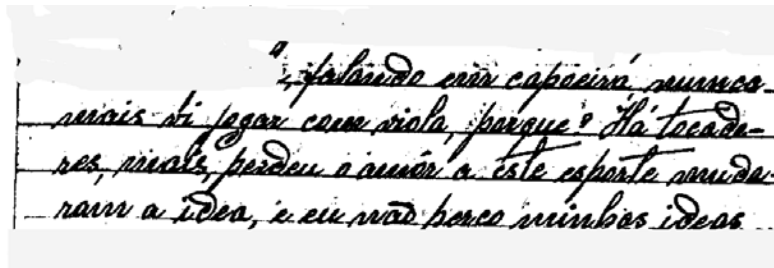 ", falando em capoeira nunca
mais vi jogar com viola, porque? Há tocado-
res, mais, perdeu o amôr a este esporte muda-
ram a idea, e eu não perco minhas ideas